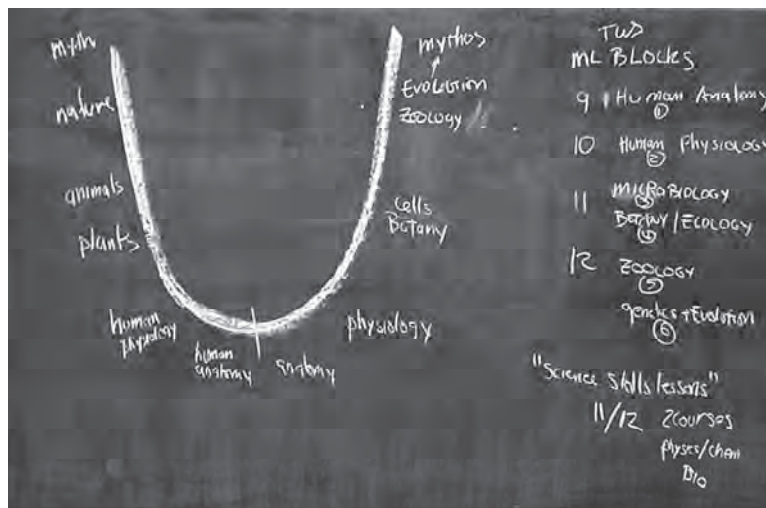 myth
nature
animals
plants
human
physiology
human
anatomy
anatomy
physiology
cells
Botany
Zoology
Evolution
mythos
TWS
ML BLOCKS
9 Human Anatomy
①
10 Human Physiology
②
11 MICROBIOLOGY
③
BOTANY/ECOLOGY
④
12 ZOOLOGY
⑤
genetics + Evolution
⑥
"Science Skills lessons"
11/12 2 courses
physcs/chem
BIO